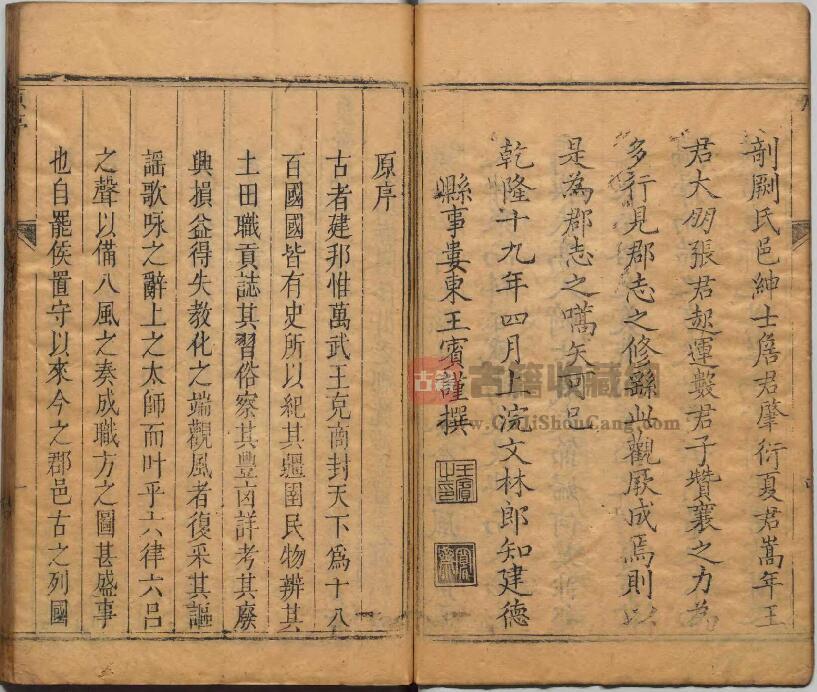 剞劂氏邑紳士詹君肇衍夏君嵩年王
君大朋張君起運數君子贊襄之力為
多行見郡志之修繇此觀厥成焉則以
是為郡志之嚆矢可已
乾隆十九年四月上浣文林郎知建德
縣事婁東王賓謹撰
王賓之印
原序
古者建邦惟萬武王克商封天下爲十八
百國國皆有史所以紀其疆圉民物辨其
土田職貢誌其習俗察其豐凶詳考其廢
興損益得失教化之端觀風者復采其謳
謡歌咏之辭上之太師而叶乎六律六呂
之聲以備八風之奏成職方之圖甚盛事
也自罷侯置守以來今之郡邑古之列國
古籍
古籍收藏網
www.GuJiShouCang.com